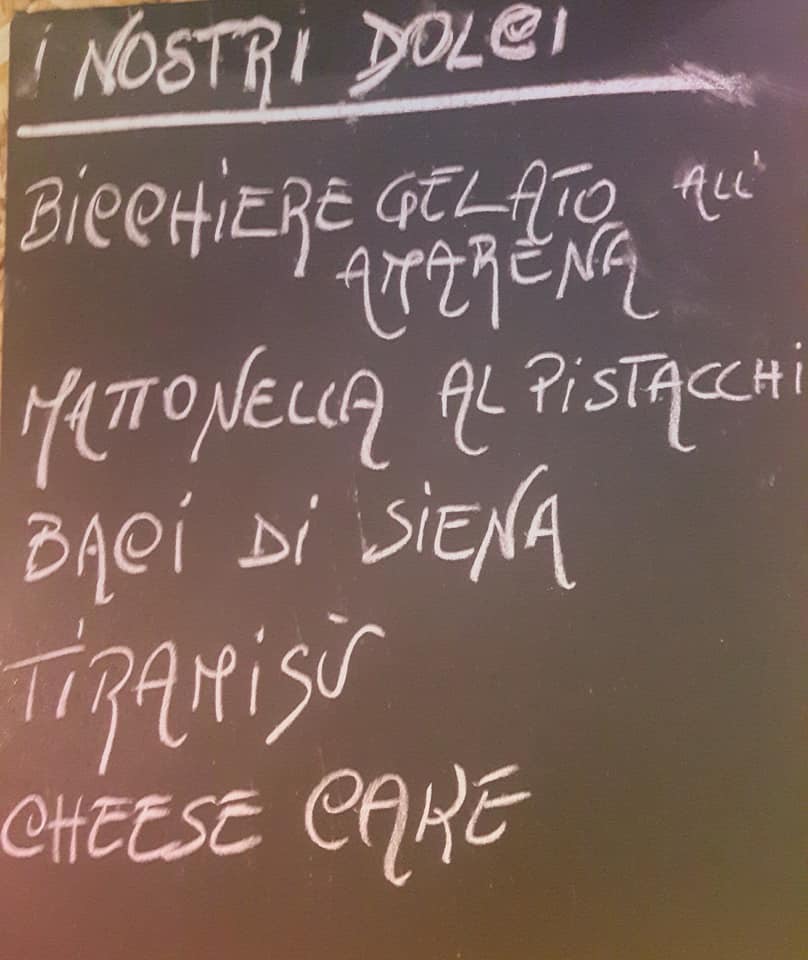 I NOSTRI DOLCI
BICCHIERE GELATO ALL'
AMARENA
MATTONELLA AL PISTACCHI
BACI DI SIENA
TIRAMISÙ
CHEESE CAKE